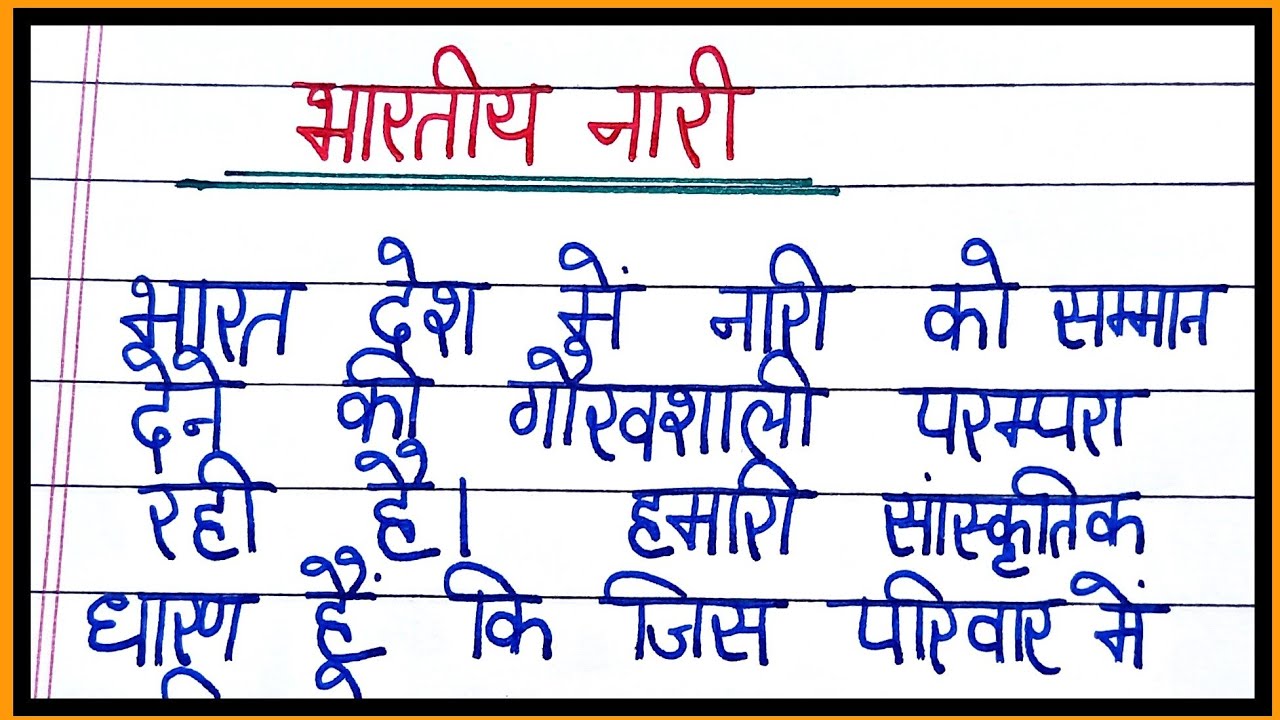 भारतीय नारी
भारत देश में नारी को सम्मान
देने की गौरवशाली परम्परा
रही है। हमारी सांस्कृतिक
धारण हैं कि जिस परिवार में